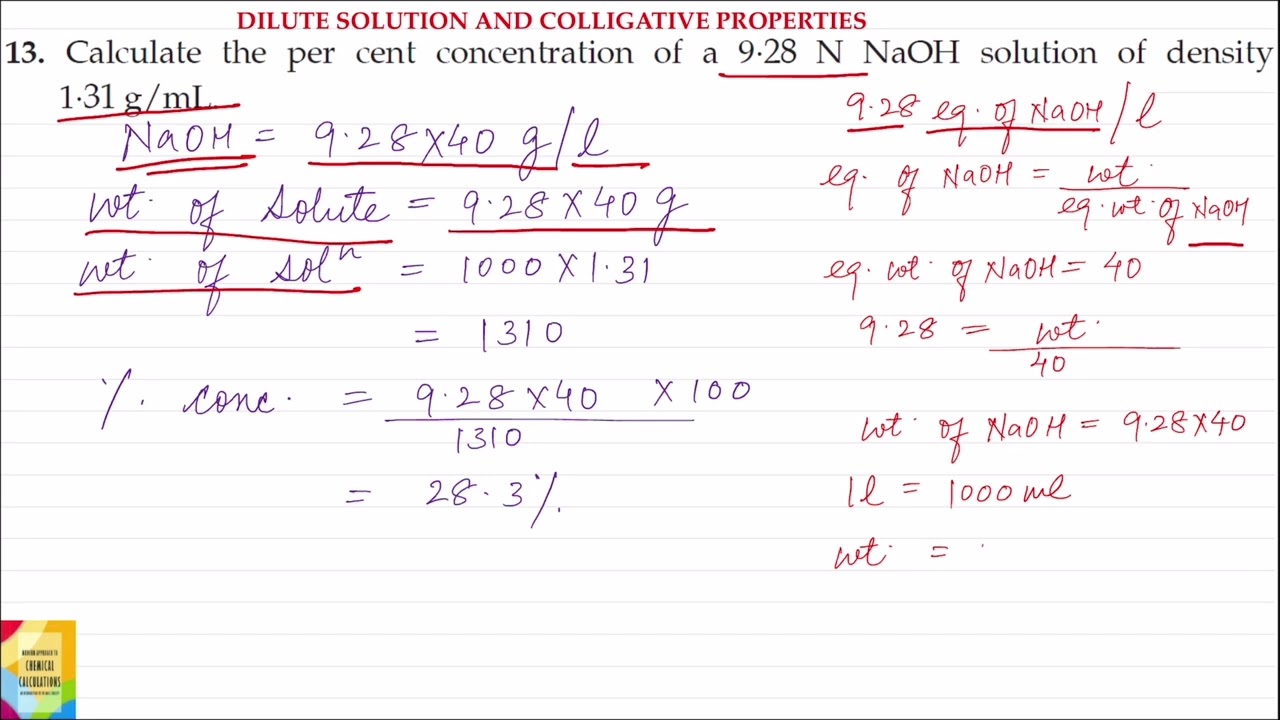 DILUTE SOLUTION AND COLLIGATIVE PROPERTIES
13. Calculate the per cent concentration of a 9·28 N NaOH solution of density
1·31 g/mL.
NaOH = 9.28×40 g/l
wt. of Solute = 9.28×40 g
wt. of solⁿ = 1000×1.31
= 1310
%. conc. = 9.28×40 ×100
1310
= 28.3%.
9.28 eq. of NaOH/l
eq. of NaOH = wt.
eq. wt. of NaOH
eq. wt. of NaOH = 40
9.28 = wt.
40
wt. of NaOH = 9.28×40
1l = 1000 ml
wt. =
MODERN APPROACH TO
CHEMICAL
CALCULATIONS